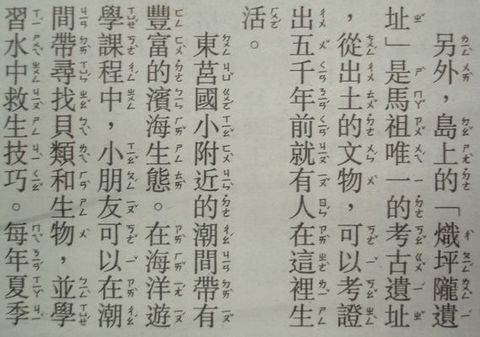 另外，島上的「熾坪隴遺
址」是馬祖唯一的考古遺址
，從出土的文物，可以考證
出五千年前就有人在這裡生
活。
東莒國小附近的潮間帶有
豐富的濱海生態。在海洋遊
學課程中，小朋友可以在潮
間帶尋找貝類和生物，並學
習水中救生技巧。每年夏季